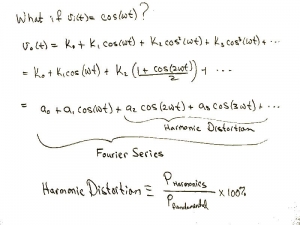 What if vi(t) = cos(ωt)?
vo(t) = K0 + K1 cos(ωt) + K2 cos²(ωt) + K3 cos³(ωt) + ...
= K0 + K1 cos(ωt) + K2 (1 + cos(2ωt) / 2) + ...
= a0 + a1 cos(ωt) + a2 cos(2ωt) + a3 cos(3ωt) + ...
Harmonic Distortion
Fourier Series
Harmonic Distortion ≡ P Harmonics / P Fundamental × 100%